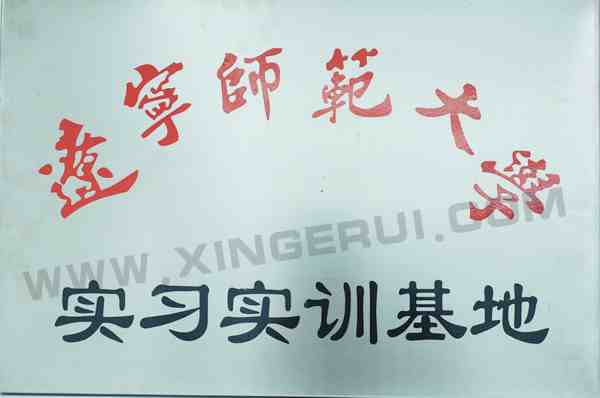 遼寧師範大學
WWW.XINGERUI.COM
实习实训基地